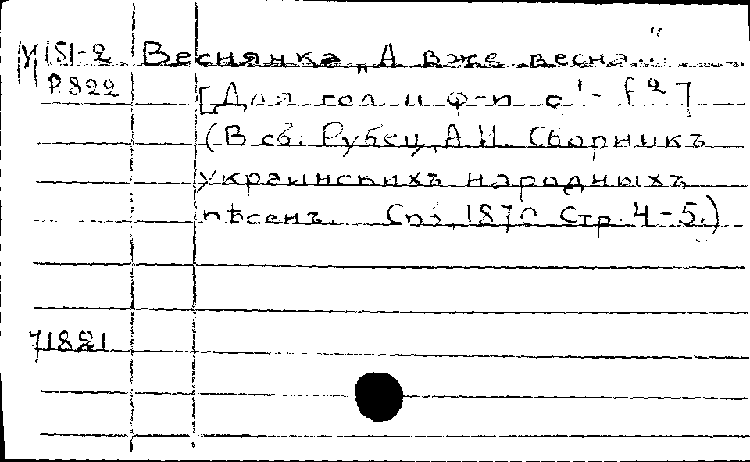 М 151-2 Веснянка „А вже весна..."
Р.822 [Для гол и ф-п c¹- f²]
(В сб. Рубец, А.И. Сборникъ
украинскихъ народныхъ
пѣсенъ. Спб, 1870 Стр. 4-5.)
71881